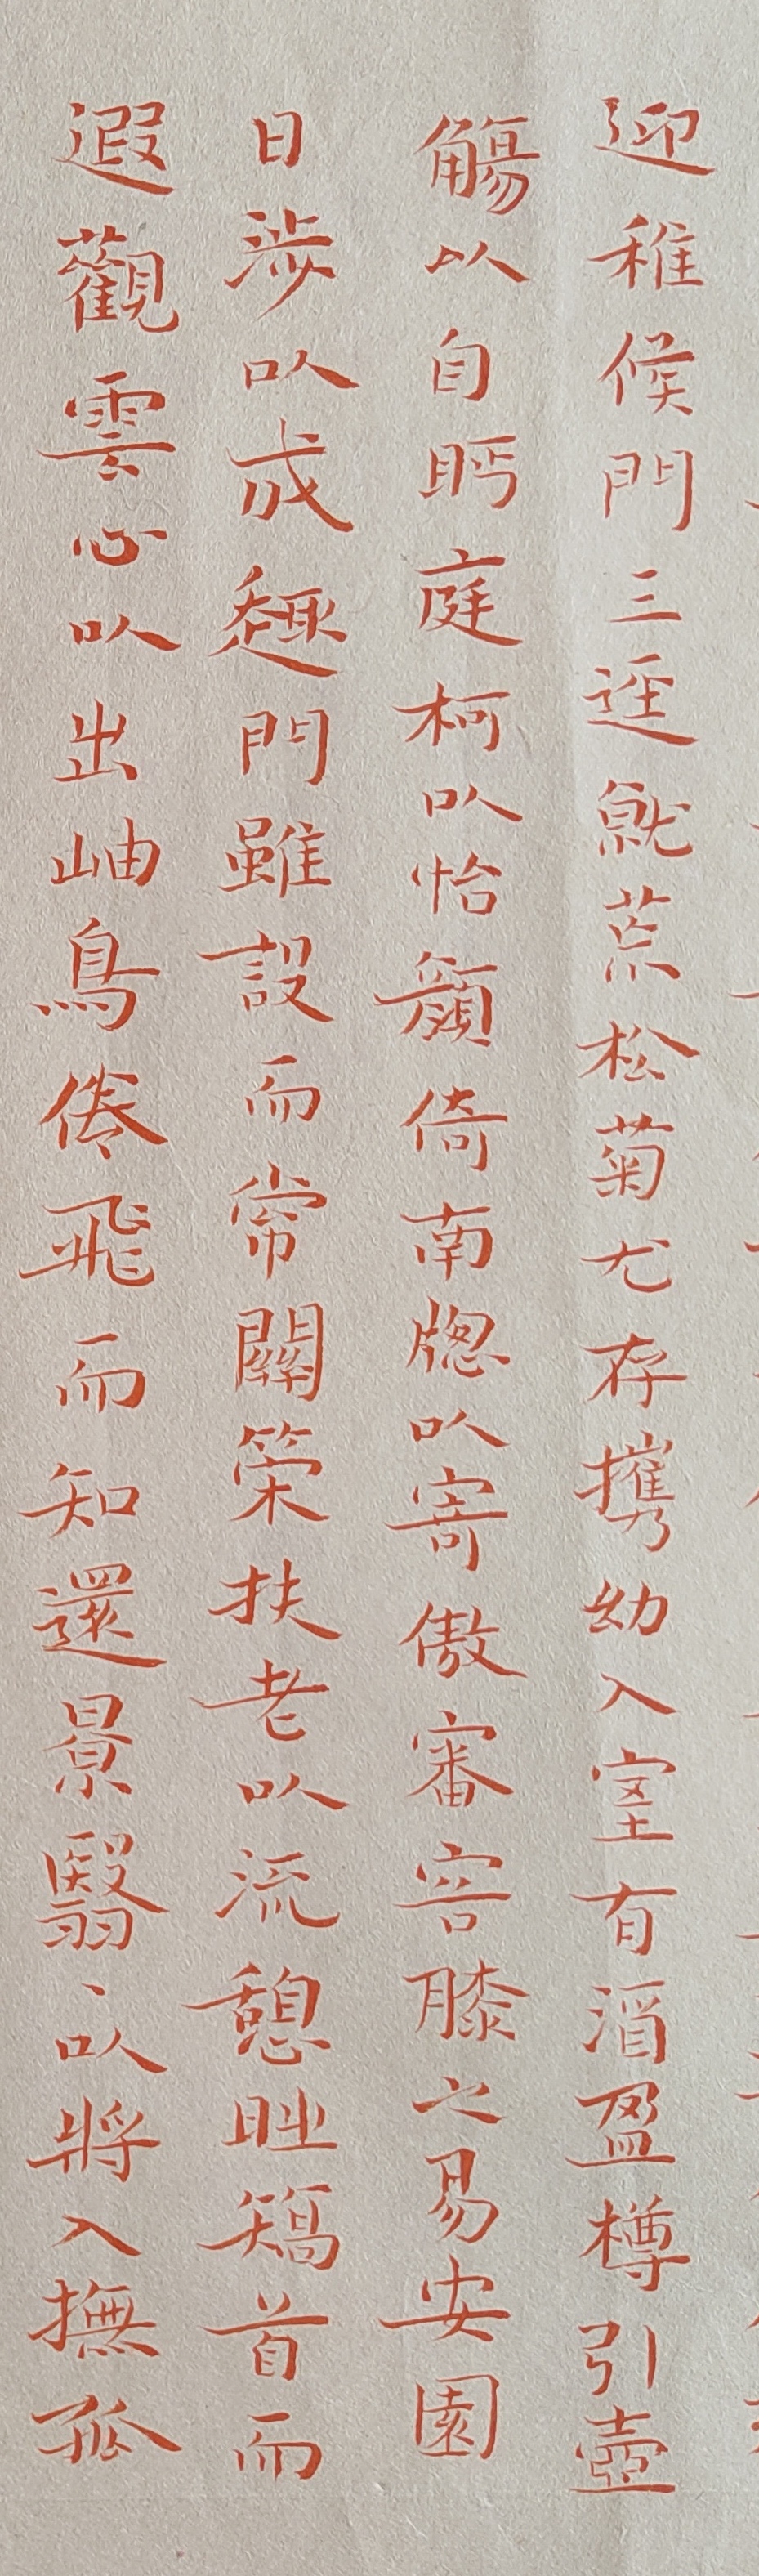 迎稚候門三逕就荒松菊尤存攜幼入室有酒盈樽引壺
觴以自眄庭柯以怡顏倚南牕以寄傲審容膝之易安園
日涉以成趣門雖設而常關策扶老以流憩時矯首而
遐觀雲心以出岫鳥倦飛而知還景翳丶以將入撫孤